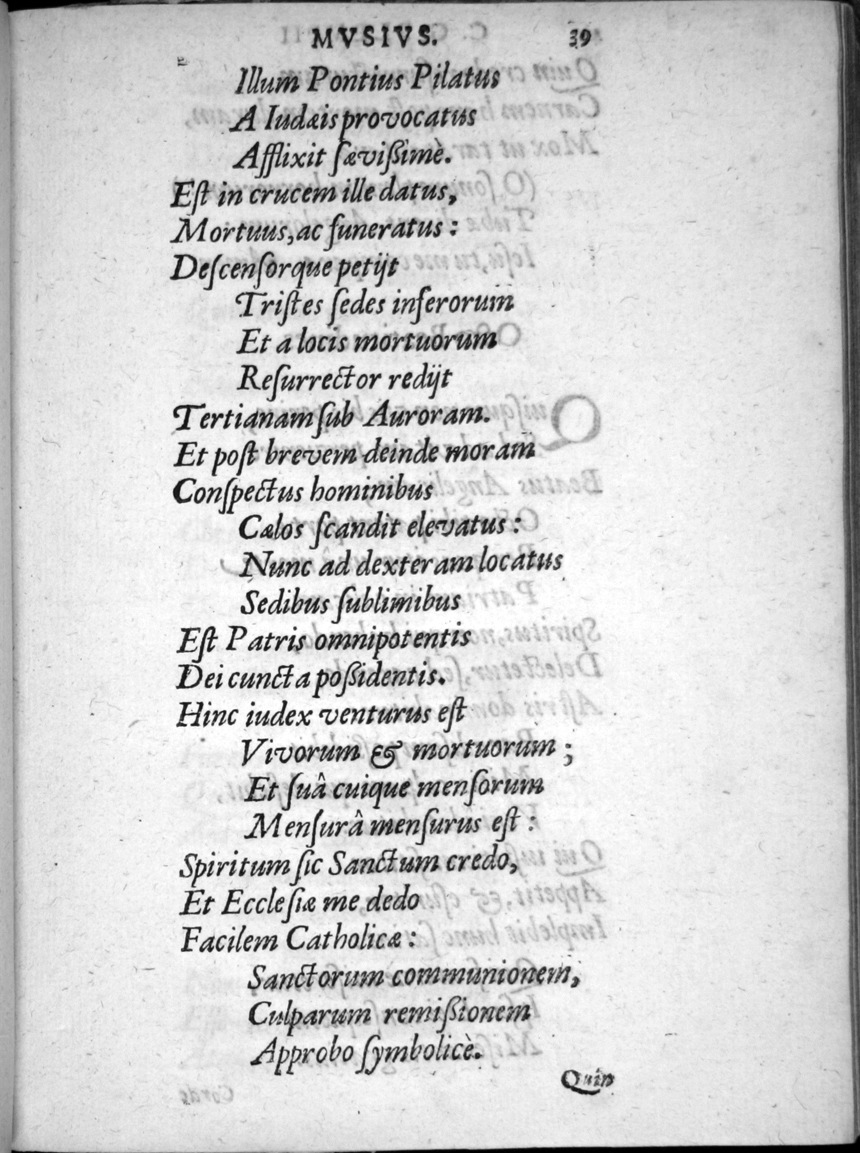 MVSIVS. 39
Illum Pontius Pilatus
A Iudæis provocatus
Afflixit sævißimè.
Est in crucem ille datus,
Mortuus, ac funeratus :
Descensorque petijt
Tristes sedes inferorum
Et a locis mortuorum
Resurrector redijt
Tertianam sub Auroram.
Et post brevem deinde moram
Conspectus hominibus
Cælos scandit elevatus :
Nunc ad dexteram locatus
Sedibus sublimibus
Est Patris omnipotentis
Dei cuncta poßidentis.
Hinc iudex venturus est
Vivorum & mortuorum ;
Et suâ cuique mensorum
Mensurâ mensurus est :
Spiritum sic Sanctum credo,
Et Ecclesiæ me dedo
Facilem Catholicæ :
Sanctorum communionem,
Culparum remißionem
Approbo symbolicè.
Quin